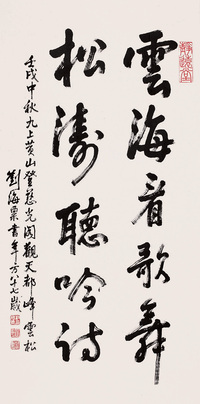 雲海看歌舞
松濤聽吟詩
壬戌中秋九上黄山登慈光閣觀天都峰雲松
劉海粟書年方八十七歲